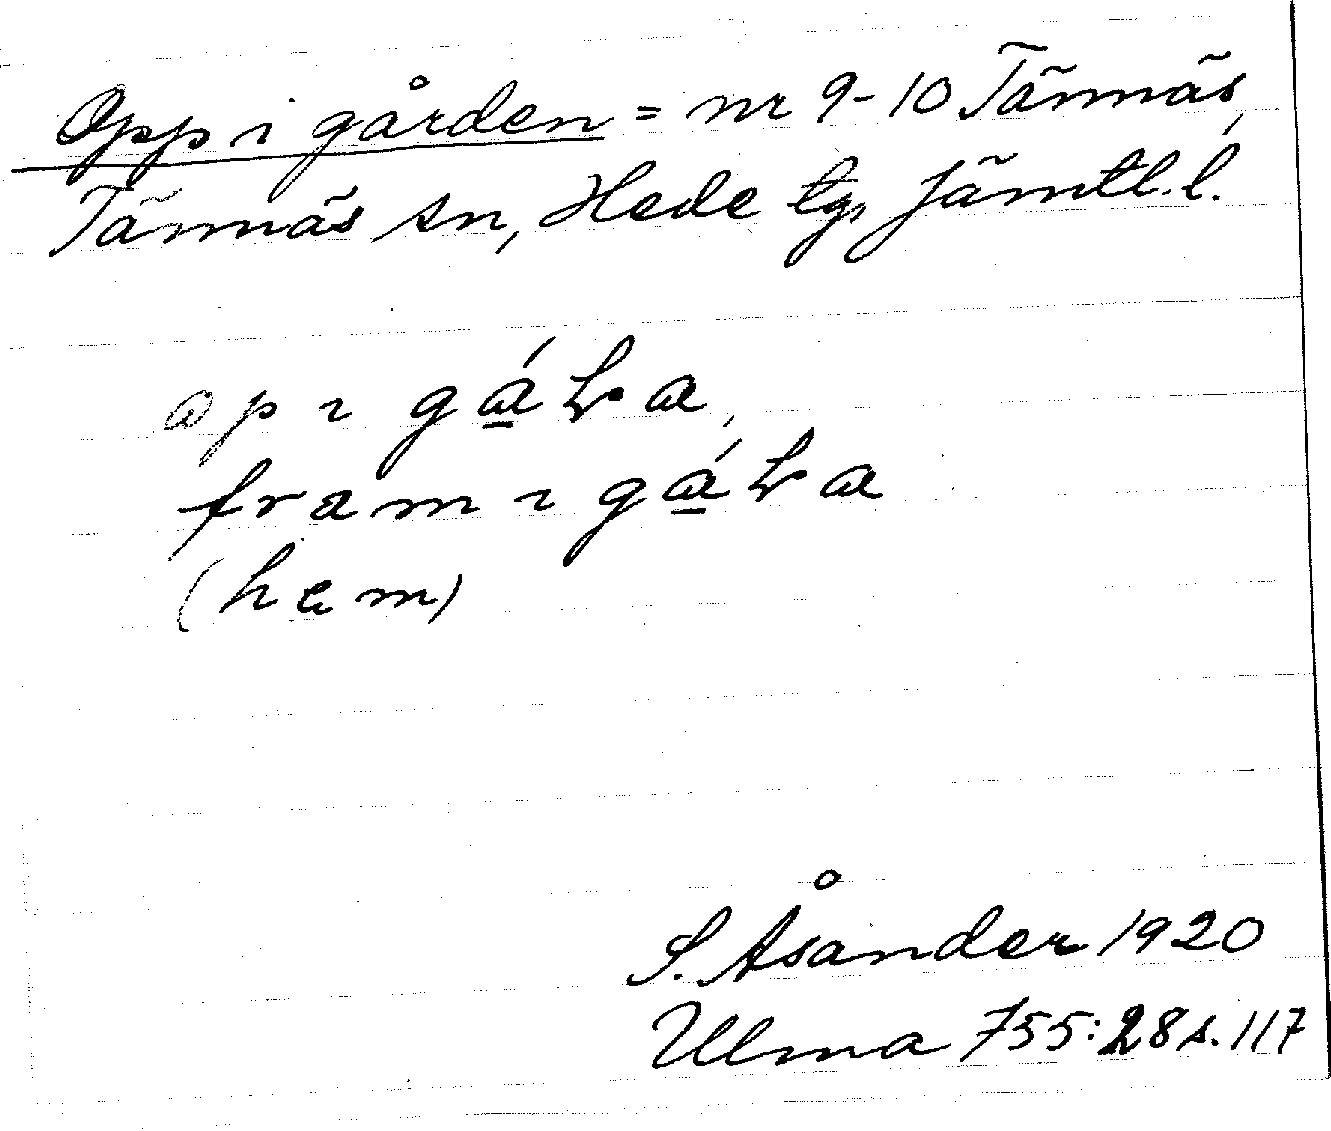 Opp i gården = nr 9-10 Tännäs,
Tännäs sn, Hede tg, Jämtl. l.
op ı gá̱ɽa,
fram ı gá̱ɽa
(hem)
S. Åsander 1920
Ulma 755:28 s. 117